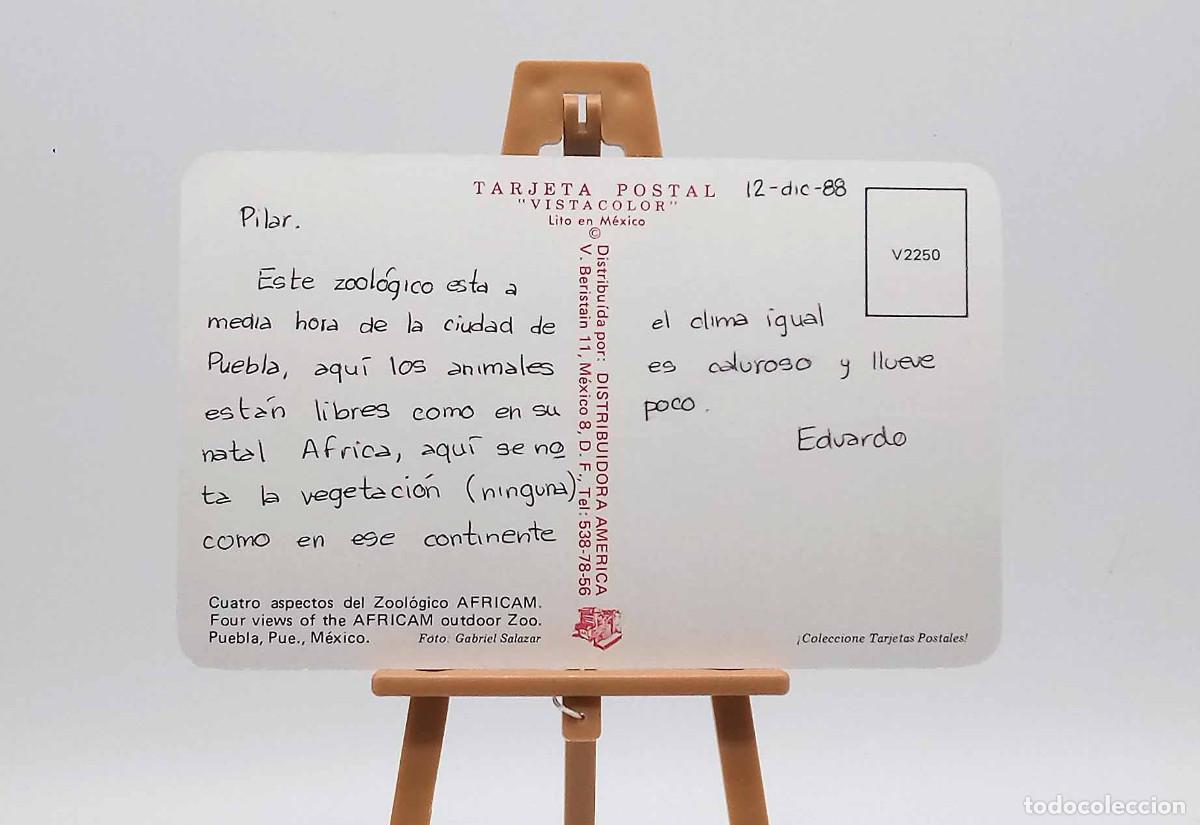 TARJETA POSTAL
"VISTACOLOR"
Lito en México
©
12-dic-88
V2250
Pilar.
Este zoológico esta a
media hora de la ciudad de
Puebla, aquí los animales
están libres como en su
natal Africa, aquí se no
ta la vegetación (ninguna)
como en ese continente
el clima igual
es caluroso y llueve
poco.
Eduardo
Distribuída por: DISTRIBUIDORA AMERICA
V. Beristain 11, México 8, D. F., Tel: 538-78-56
Cuatro aspectos del Zoológico AFRICAM.
Four views of the AFRICAM outdoor Zoo.
Puebla, Pue., México. Foto: Gabriel Salazar
¡Coleccione Tarjetas Postales!
todocoleccion